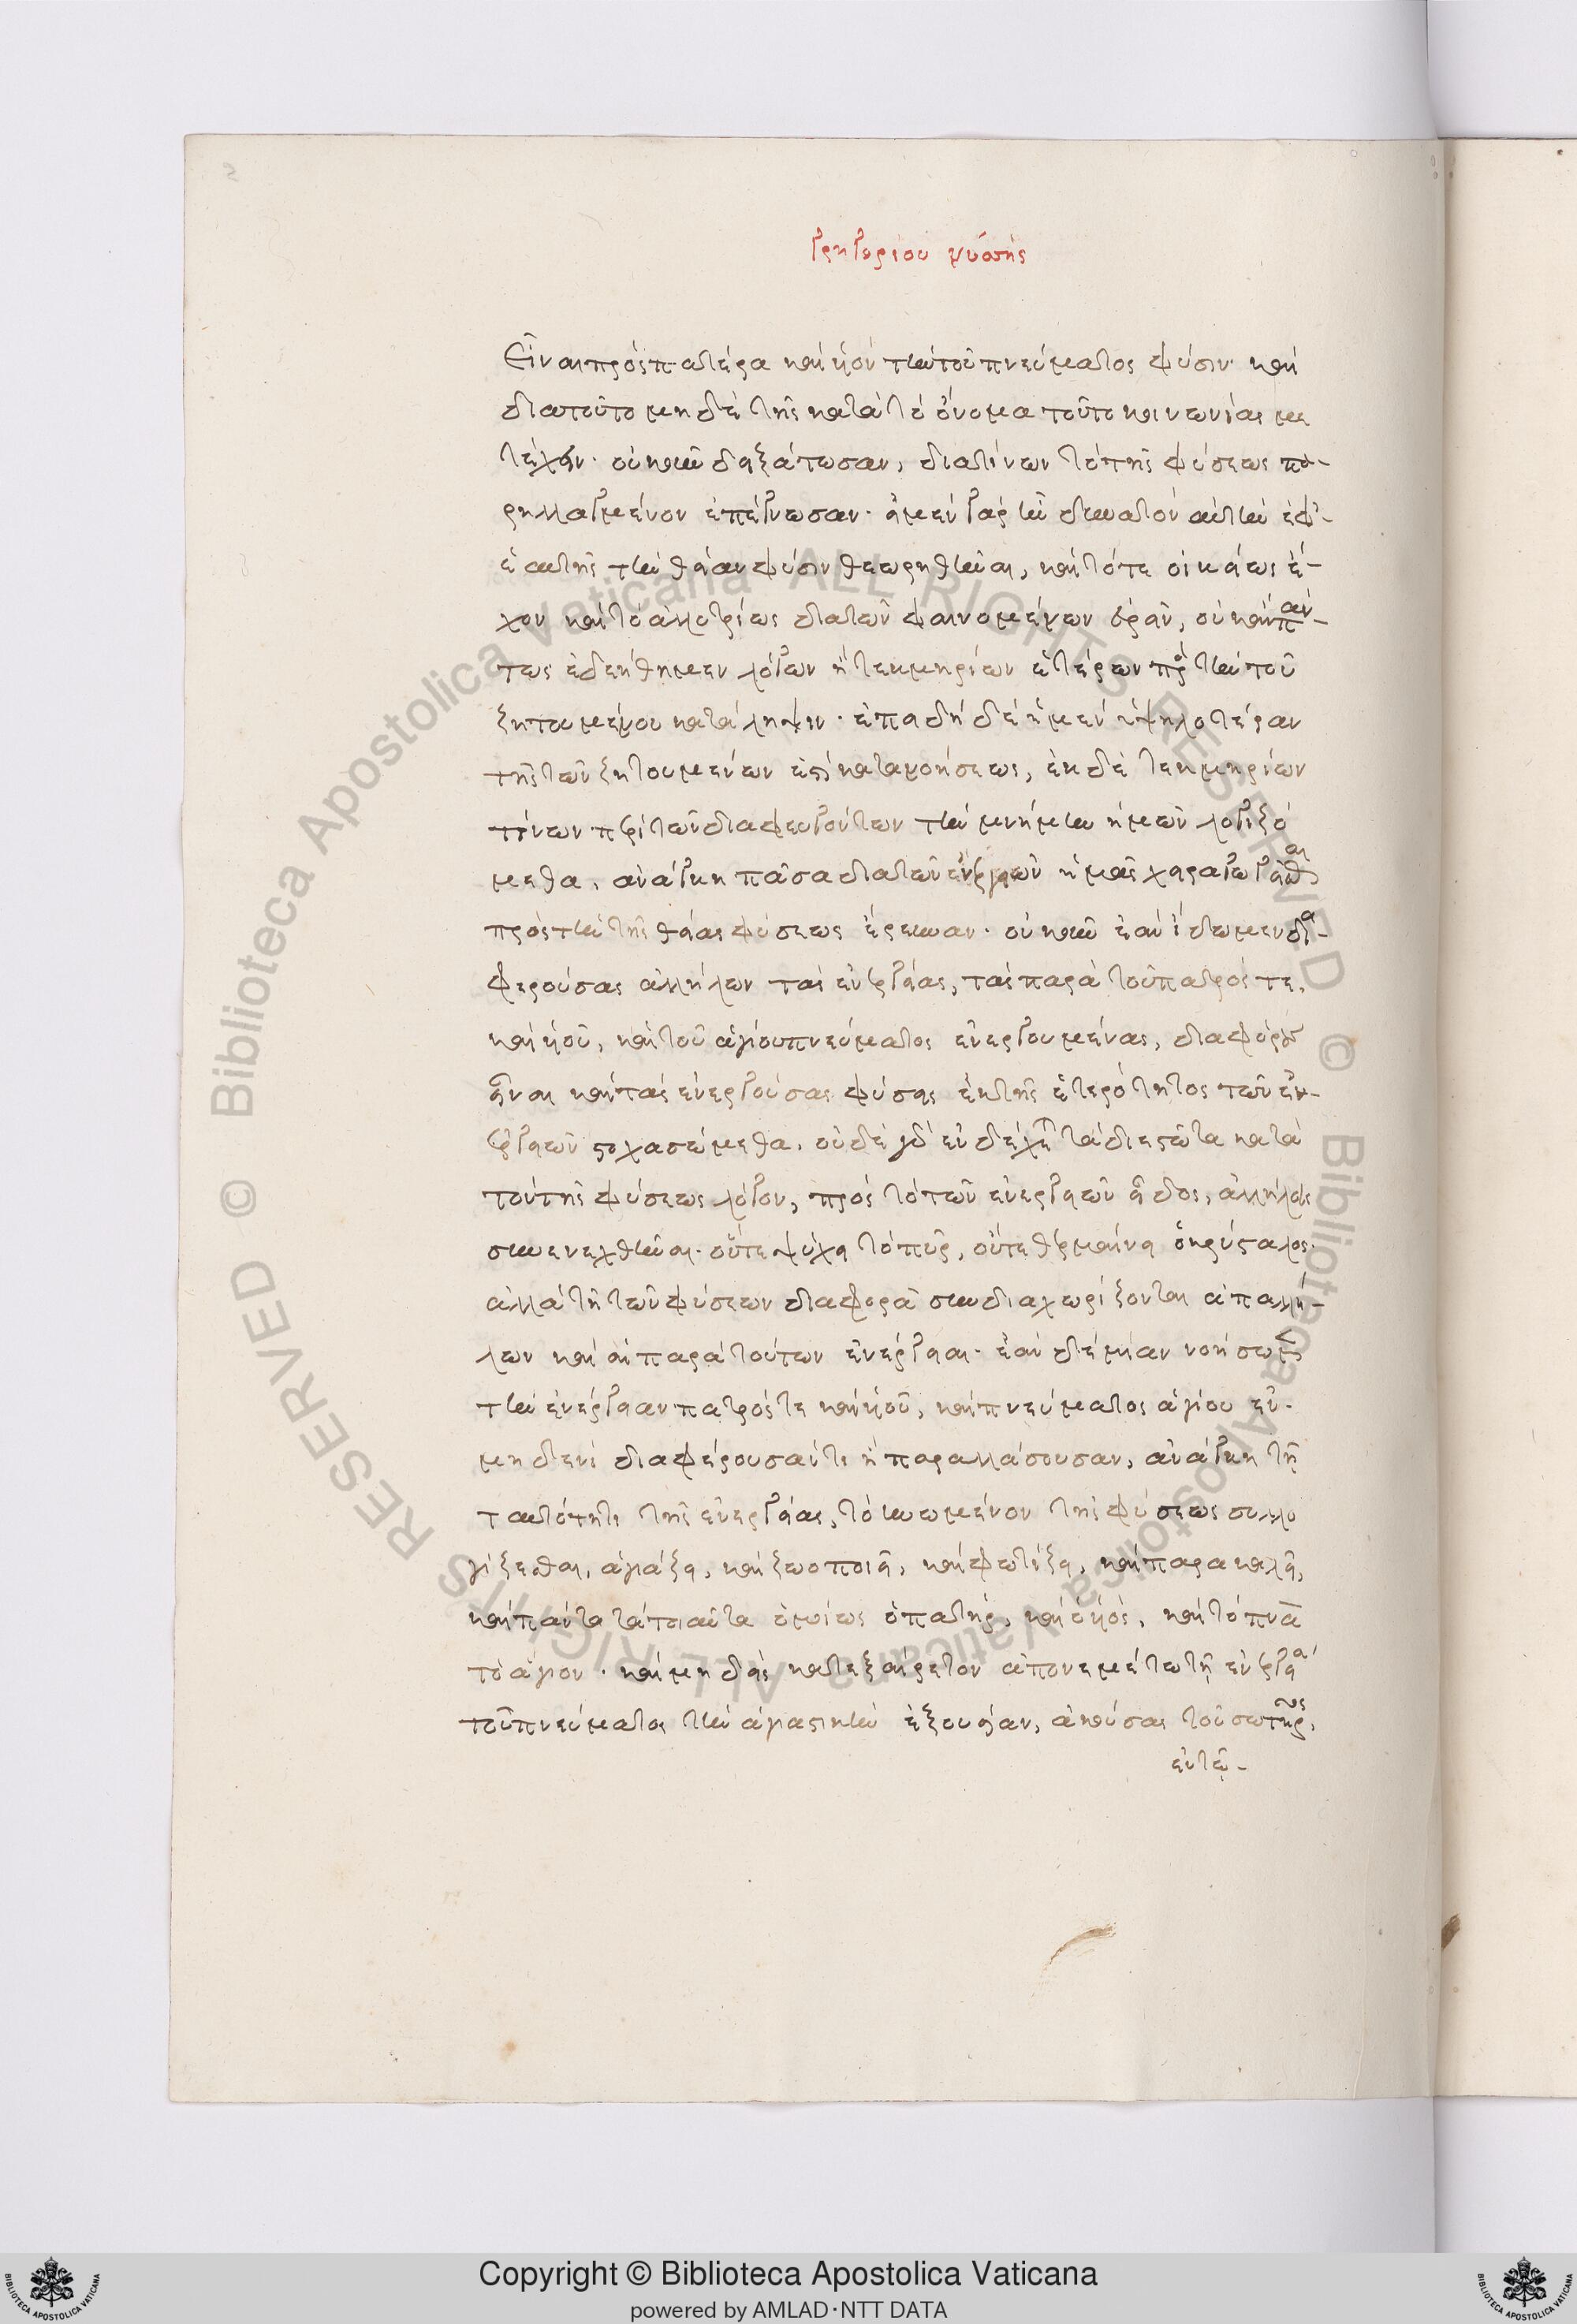 Γρηγορίου νύσης
Εἶναι πρὸς πατέρα καὶ υἱὸν τὴν τοῦ πνεύματος φύσιν· καὶ
διατοῦτο μηδὲ τῆς κατὰ τὸ ὄνομα τοῦτο κοινωνίας με
τέχειν· οὐκοῦν δειξάτωσαν, διατίνων τὸ τῆς φύσεως πα-
ρηλλαγμένον ἐπέγνωσαν· εἰ μὲν γὰρ ἦν δυνατὸν αὐτὴν ἐφ'-
ἑαυτῆς τὴν θείαν φύσιν θεωρηθῆναι, καὶ τό τε οἰκείως ἔ-
χον καὶ τὸ ἀλλοτρίως διατῶν φαινομένων ὁρᾶν, οὐκ ἂν πάν-
τως ἐδεήθημεν λόγων ἢ τεκμηρίων ἑτέρων πρὸς τὴν τοῦ
ζητουμένου κατάληψιν· ἐπειδὴ δὲ ἡ μὲν ὑψηλοτέραν
τῆς τῶν ζητουμένων ἐστὶ κατανοήσεως, ἐκ δὲ τεκμηρίων
τίνων περὶ τῶν διαφευγόντων τὴν μνήμην ἡμῶν λογιζό
μεθα, ἀνάγκη πᾶσα διατῶν ἐνεργειῶν ἡμᾶς χειραγωγεῖσθαι
πρὸς τὴν τῆς θείας φύσεως ἔρευναν· οὐκοῦν ἐὰν ἴδωμεν δια-
φερούσας ἀλλήλων τὰς ἐνεργείας, τὰς παρὰ τοῦ πατρός τε,
καὶ υἱοῦ, καὶ τοῦ ἁγίου πνεύματος ἐνεργουμένας, διαφόρους
εἶναι καὶ τὰς ἐνεργούσας φύσεις ἐκ τῆς ἑτερότητος τῶν ἐν-
εργειῶν στοχασώμεθα. οὐδὲ γὰρ ἐνδέχεται τὰ διεστῶτα κατὰ
τὸν τῆς φύσεως λόγον, πρὸς τὸ τῶν ἐνεργειῶν εἶδος, ἀλλήλοις
συνενεχθῆναι· οὔτε ψύχει τὸ πῦρ, οὔτε θερμαίνει ὁ κρύσταλος·
ἀλλὰ τῇ τῶν φύσεων διαφορᾷ συνδιαχωρίζονται ἀπ' αλλή-
λων καὶ αἱ παρὰ τούτων ἐνέργειαι· ἐὰν δὲ μίαν νοήσωμεν
τὴν ἐνέργειαν πατρός τε καὶ υἱοῦ, καὶ πνεύματος ἁγίου ἐν-
μηδενὶ διαφέρουσάν τι ἢ παραλλάσουσαν, ἀνάγκη τῇ
ταυτότητι τῆς ἐνεργείας, τὸ ἡνωμένον τῆς φύσεως συλλο
γίζεσθαι, ἁγιάζει, καὶ ζωοποιεῖ, καὶ φωτίζει, καὶ παρακαλεῖ,
καὶ πάντα τὰ τοιαῦτα ὁμοίως ὁ πατὴρ, καὶ ὁ υἱὸς, καὶ τὸ πνα
τὸ ἅγιον· καὶ μηδεὶς κατεξαίρετον ἀπονεμέτω τῇ ἐνεργείᾳ
τοῦ πνεύματος τὴν ἁγιαστικὴν ἐξουσίαν, ἀκούσας τοῦ σωτῆρος
ἐν τῷ-